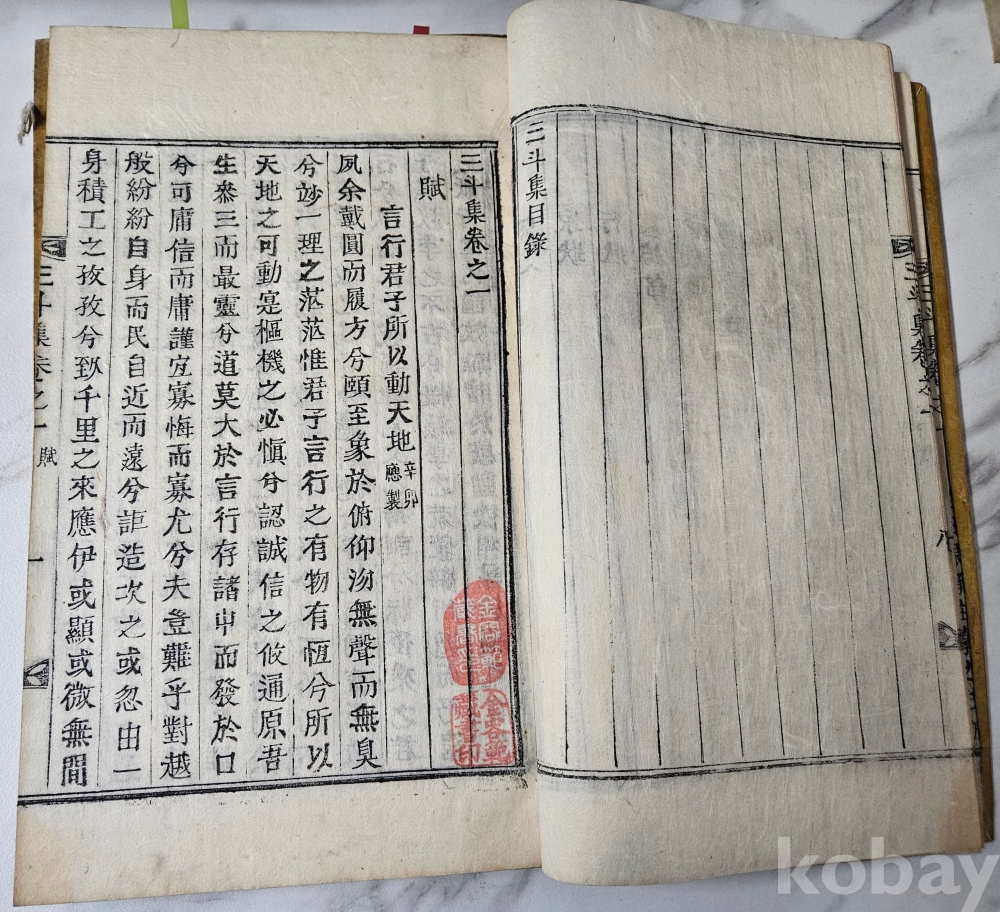 三斗集目錄
三斗集卷之一
賦
言行君子所以動天地 辛卯應製
夙余戴圓而履方兮頤至象於俯仰沕無聲而無臭
兮玅一理之茫茫惟君子言行之有物有恆兮所以
天地之可動寔樞機之必愼兮認誠信之攸通原吾
生叅三而最靈兮道莫大於言行存諸中而發於口
兮可庸信而庸謹宜寡悔而寡尤兮夫豈難乎對越
般紛紛自身而民自近而遠兮詎造次之或忽由一
身積工之孜孜兮致千里之來應伊或顯或微無間
三斗集卷之一 賦 一
藏書印
kobay